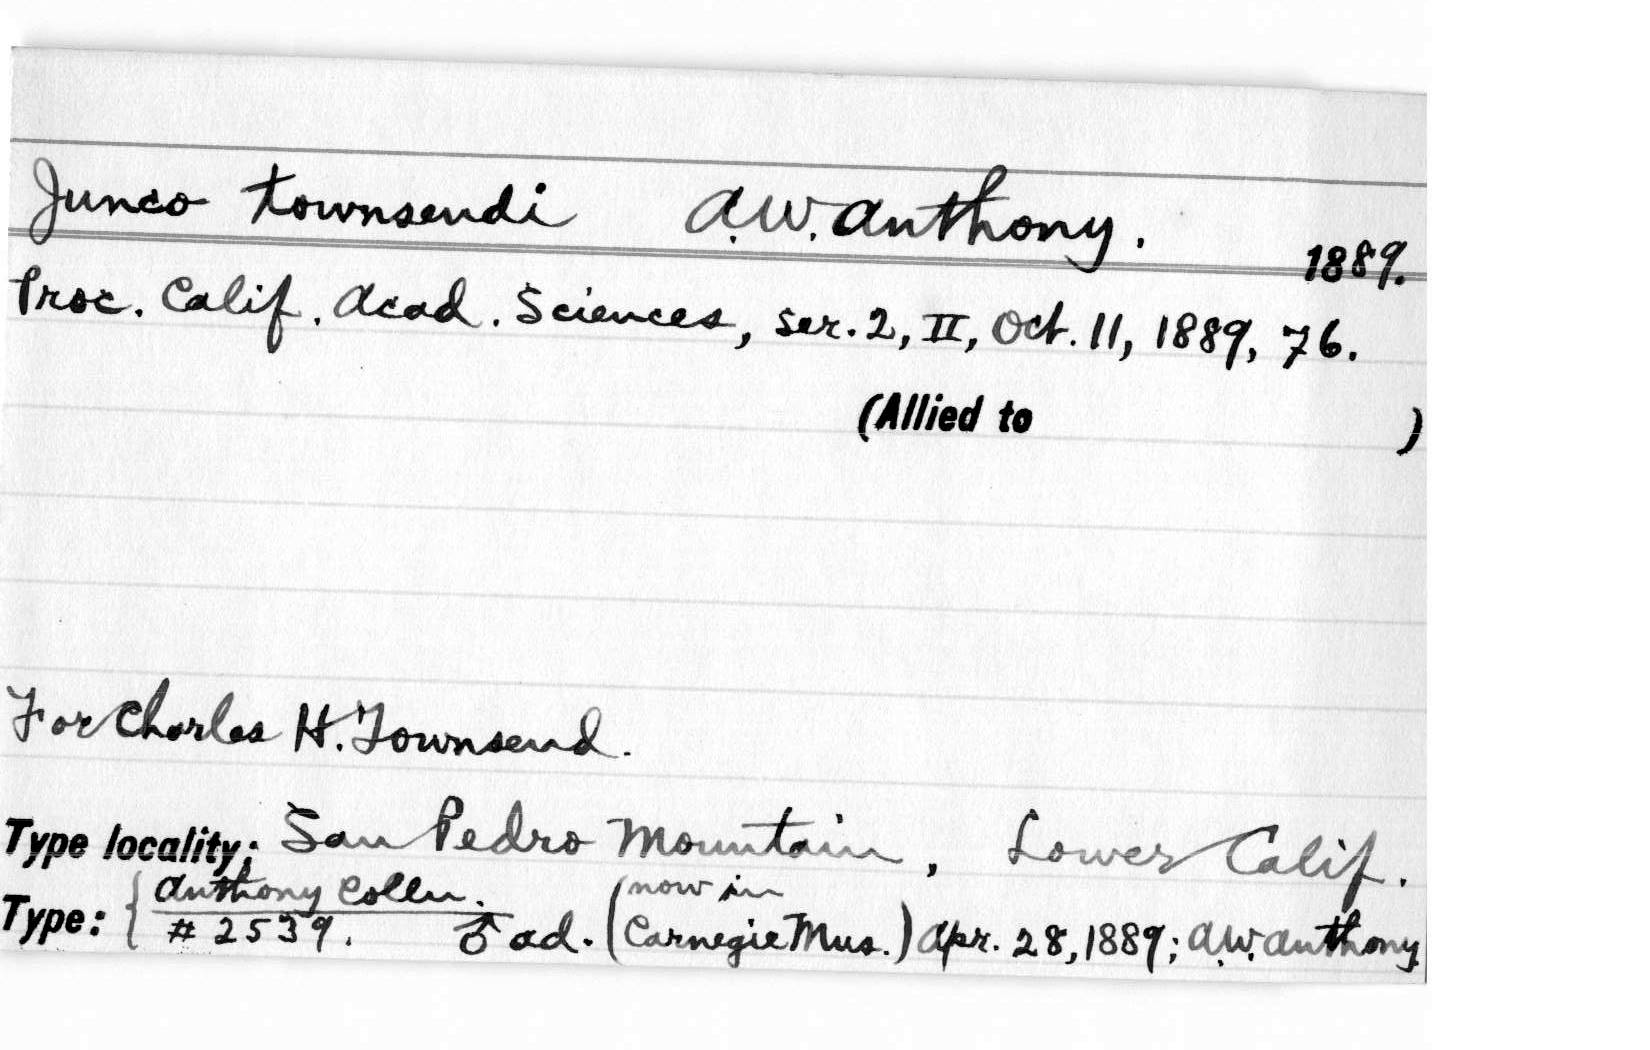 Junco townsendi A.W. Anthony.
1889.
Proc. Calif. Acad. Sciences, ser. 2, II, Oct. 11, 1889, 76.
(Allied to )
For Charles H. Townsend.
Type locality; San Pedro Mountain, Lower Calif.
Anthony Colln. (now in
Type: { # 2539. ♂ ad. Carnegie Mus.) Apr. 28, 1889; A.W. Anthony